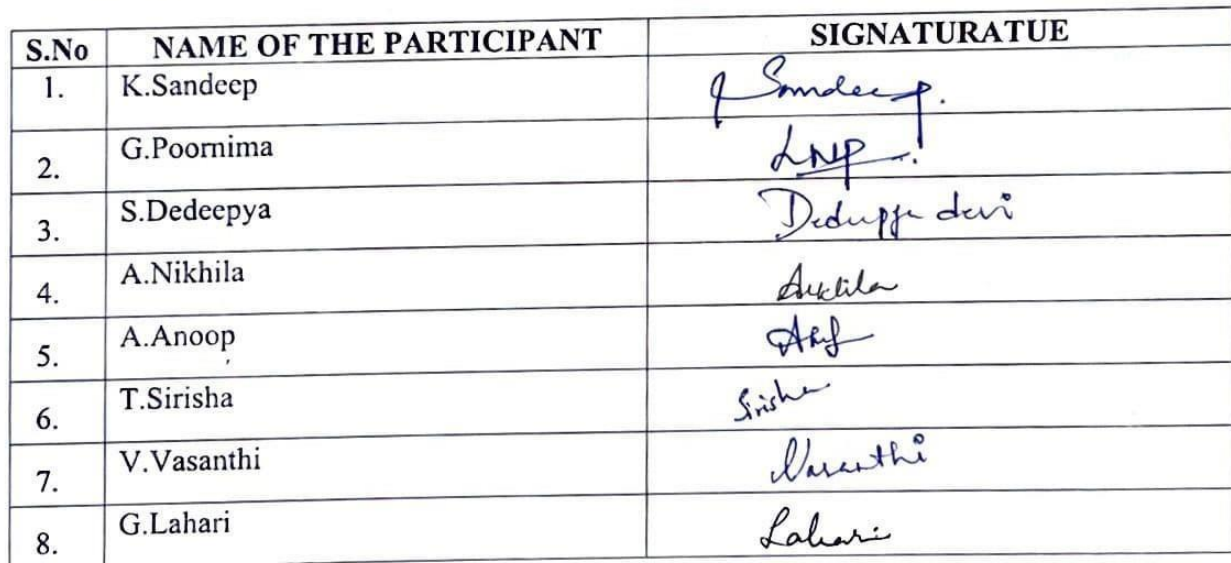 S.No NAME OF THE PARTICIPANT SIGNATURATUE
1. K.Sandeep Sandeep.
2. G.Poornima
3. S.Dedeepya devi
4. A.Nikhila
5. A.Anoop
6. T.Sirisha Sirisha
7. V.Vasanthi Vasanthi
8. G.Lahari Lahari